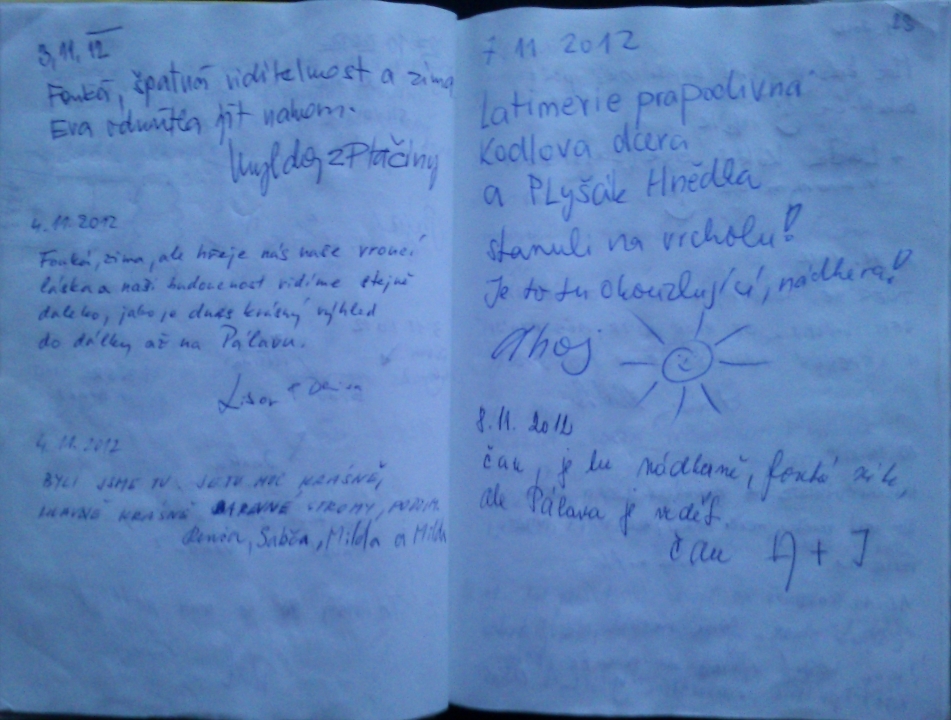 3. 11. 12
Fouká, špatná viditelnost a zima
Eva odmítla jít nahoru.
z Ptačiny
4. 11. 2012
Fouká, zima, ale hřeje nás naše vroucí
láska a naší budoucnost vidíme stejně
daleko, jako je dnes krásný výhled
do dálky až na Pálavu.
Libor +
4. 11. 2012
BYLI JSME TU. JE TU MOC KRÁSNĚ,
HLAVNĚ KRÁSNĚ BAREVNÉ STROMY, PODZIM.
Sabča, Milda a Milda
19
7 11 2012
Latimerie prapodivná
Kodlova dcera
a PLyšák Hnědka
stanuli na vrcholu!
Je to tu okouzlující, nádhera!
Ahoj
8. 11. 2012
čau, je tu nádherně, fouká
ale Pálava je vidět
čau A + J